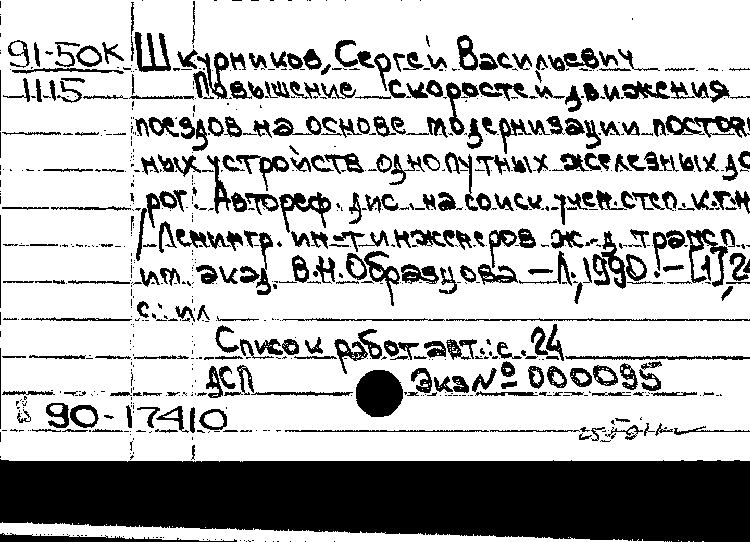 91-50К Шкурников, Сергей Васильевич
1115 Повышение скоростей движения
поездов на основе модернизации постоян
ных устройств однопутных железных до
рог: Автореф. дис. на соиск. учен. степ. к.т.н
/Ленингр. ин-т инженеров ж.-д. трансп.
им. акад. В.Н. Образцова. – Л., 1990. – [1], 24
с.: ил.
Список работ авт.: с. 24
ДСП Экз № 000095
90-17410